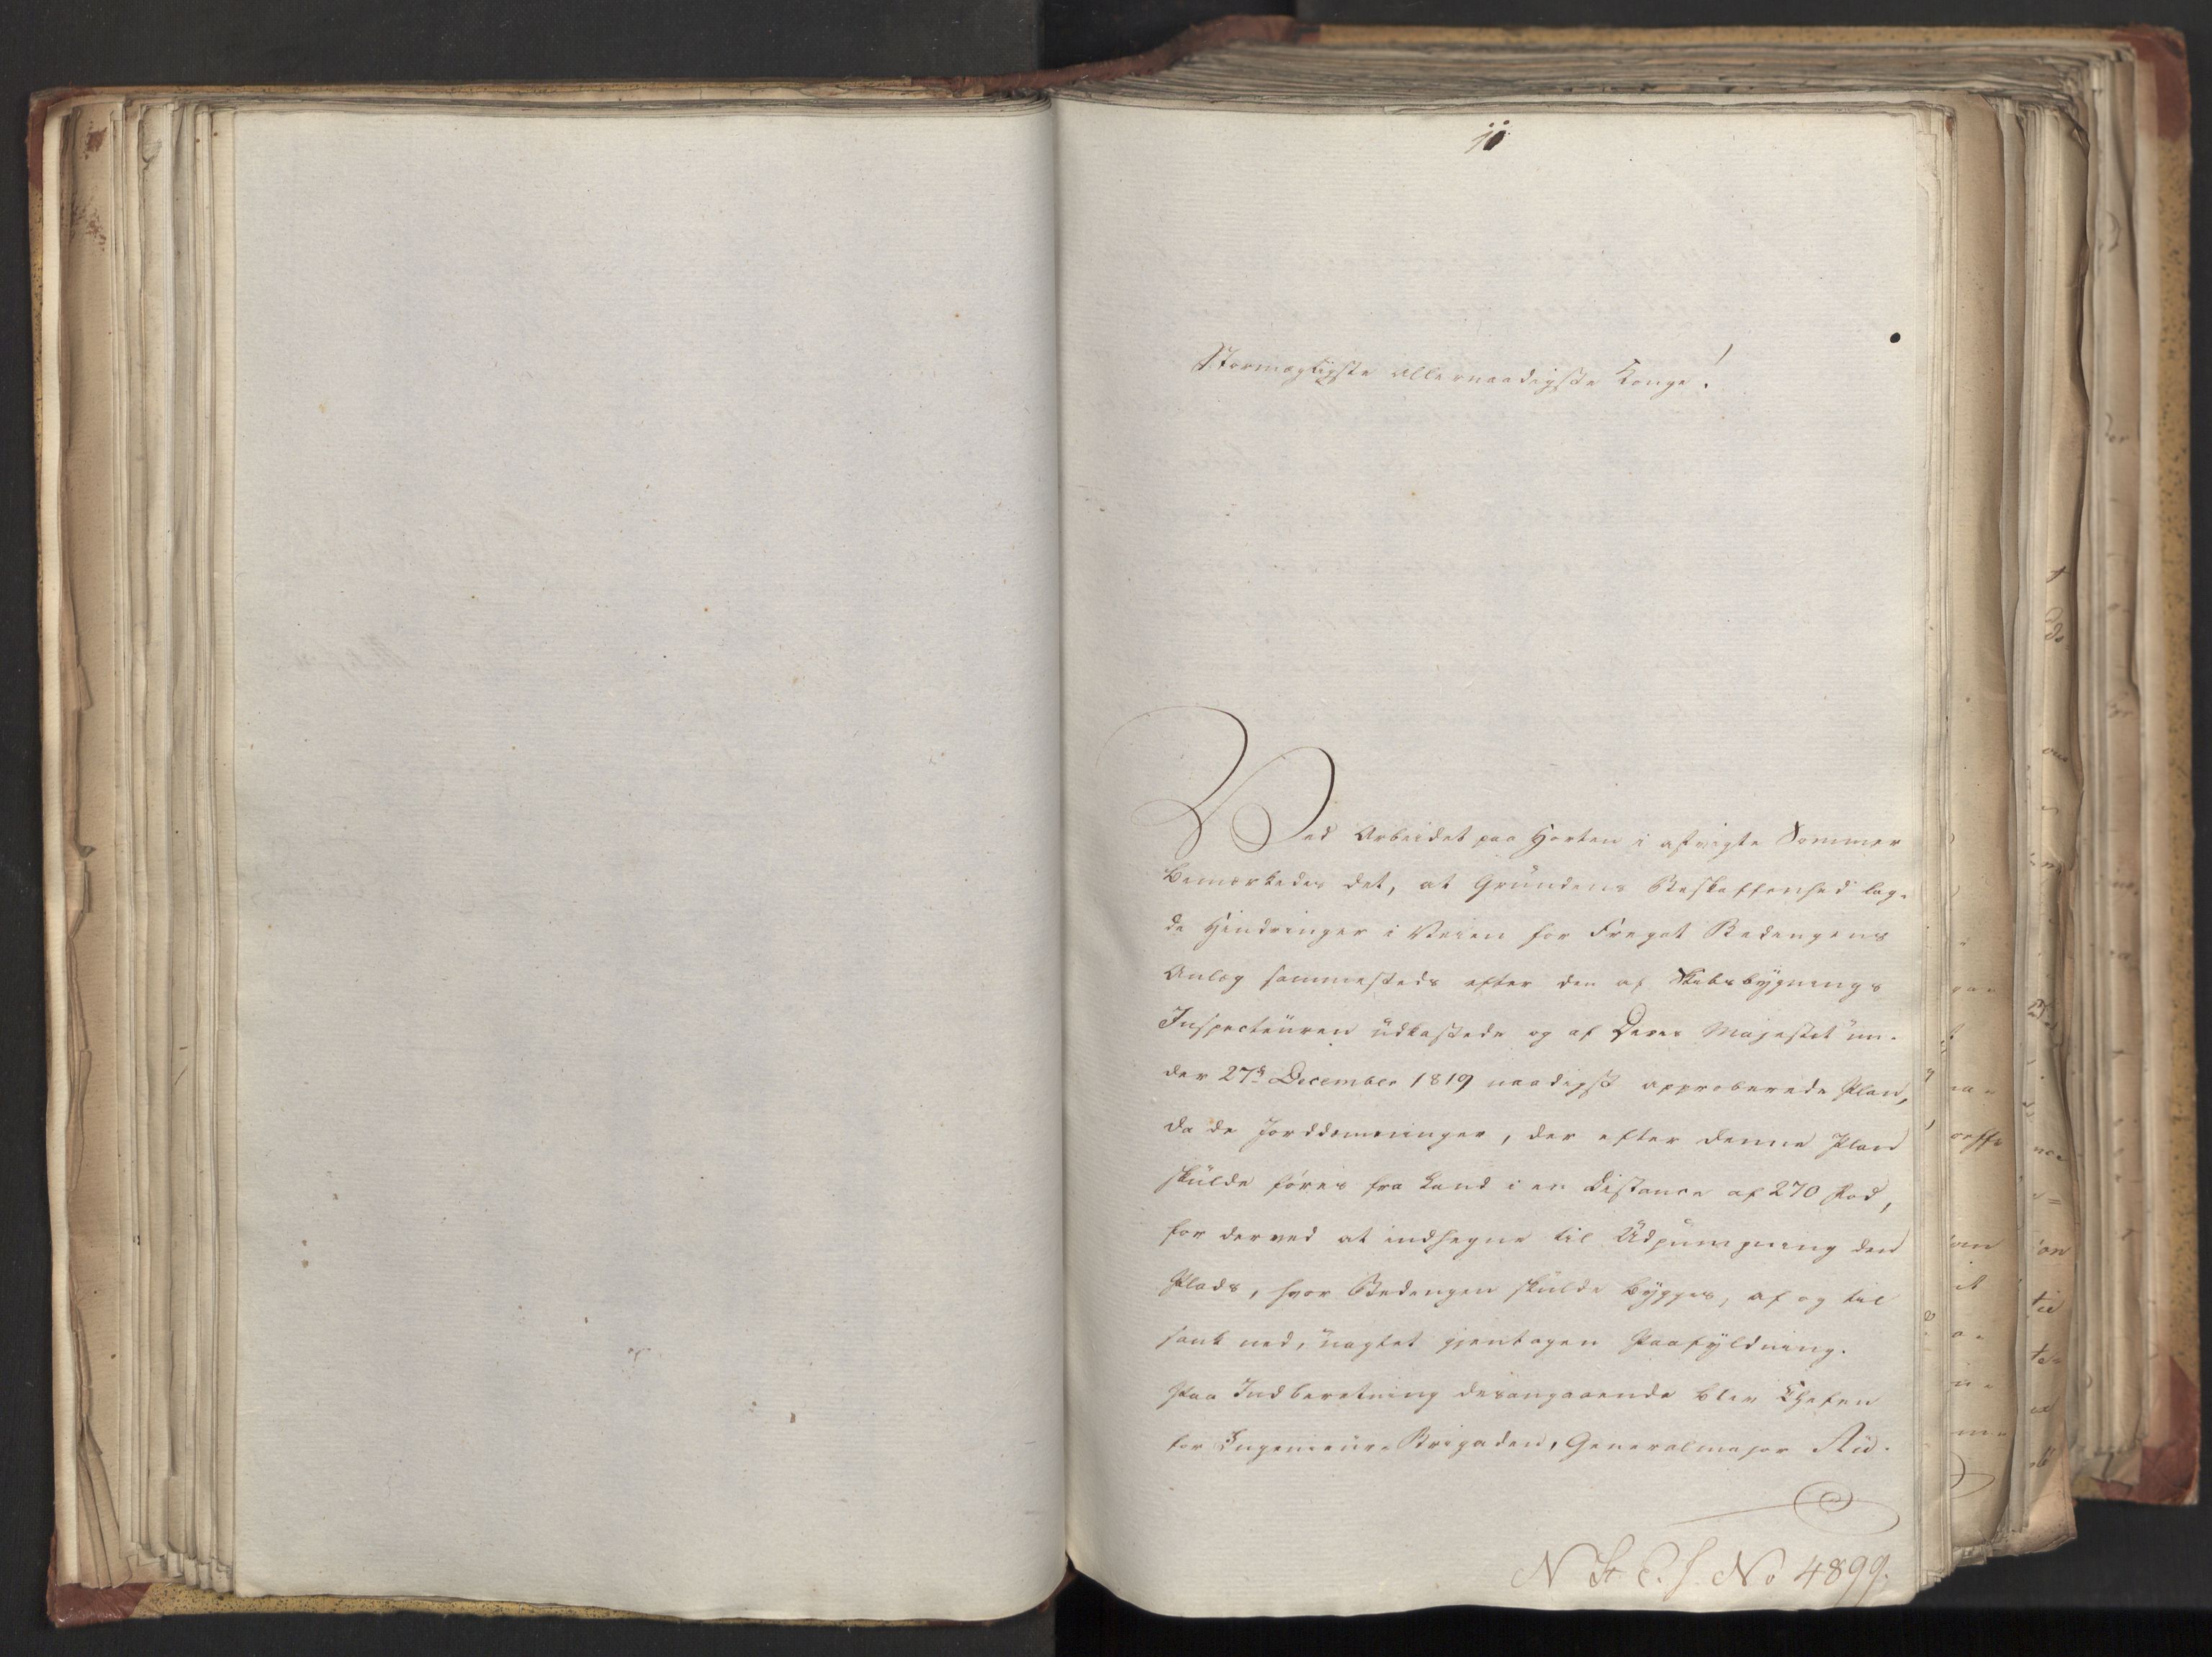 Stormægtigste Allernaadigste Konge!
Ved Arbeidet paa Horten i afvigte Sommer
bemærkedes det, at Grundens Beskaffenhed lag-
de Hindringer i Veien for Fregat Bedengens
Anlæg sammesteds efter den af Skibsbygnings
Inspecteuren udkastede og af Deres Majestæt un-
der 27de December 1819 naadigst approberede Plan,
da de Jorddæmninger, der efter denne Plan
skulde føres fra Land i en Distance af 270 Fod,
for derved at indhegne til Udpumpning den
Plads, hvor Bedengen skulde bygges, af og til
sank ned, uagtet gjentagen Paafyldning.
Paa Indberetning desangaaende blev Chefen
for Ingenieur-Brigaden, Generalmajor Au-
N St. C. S. No 4899.